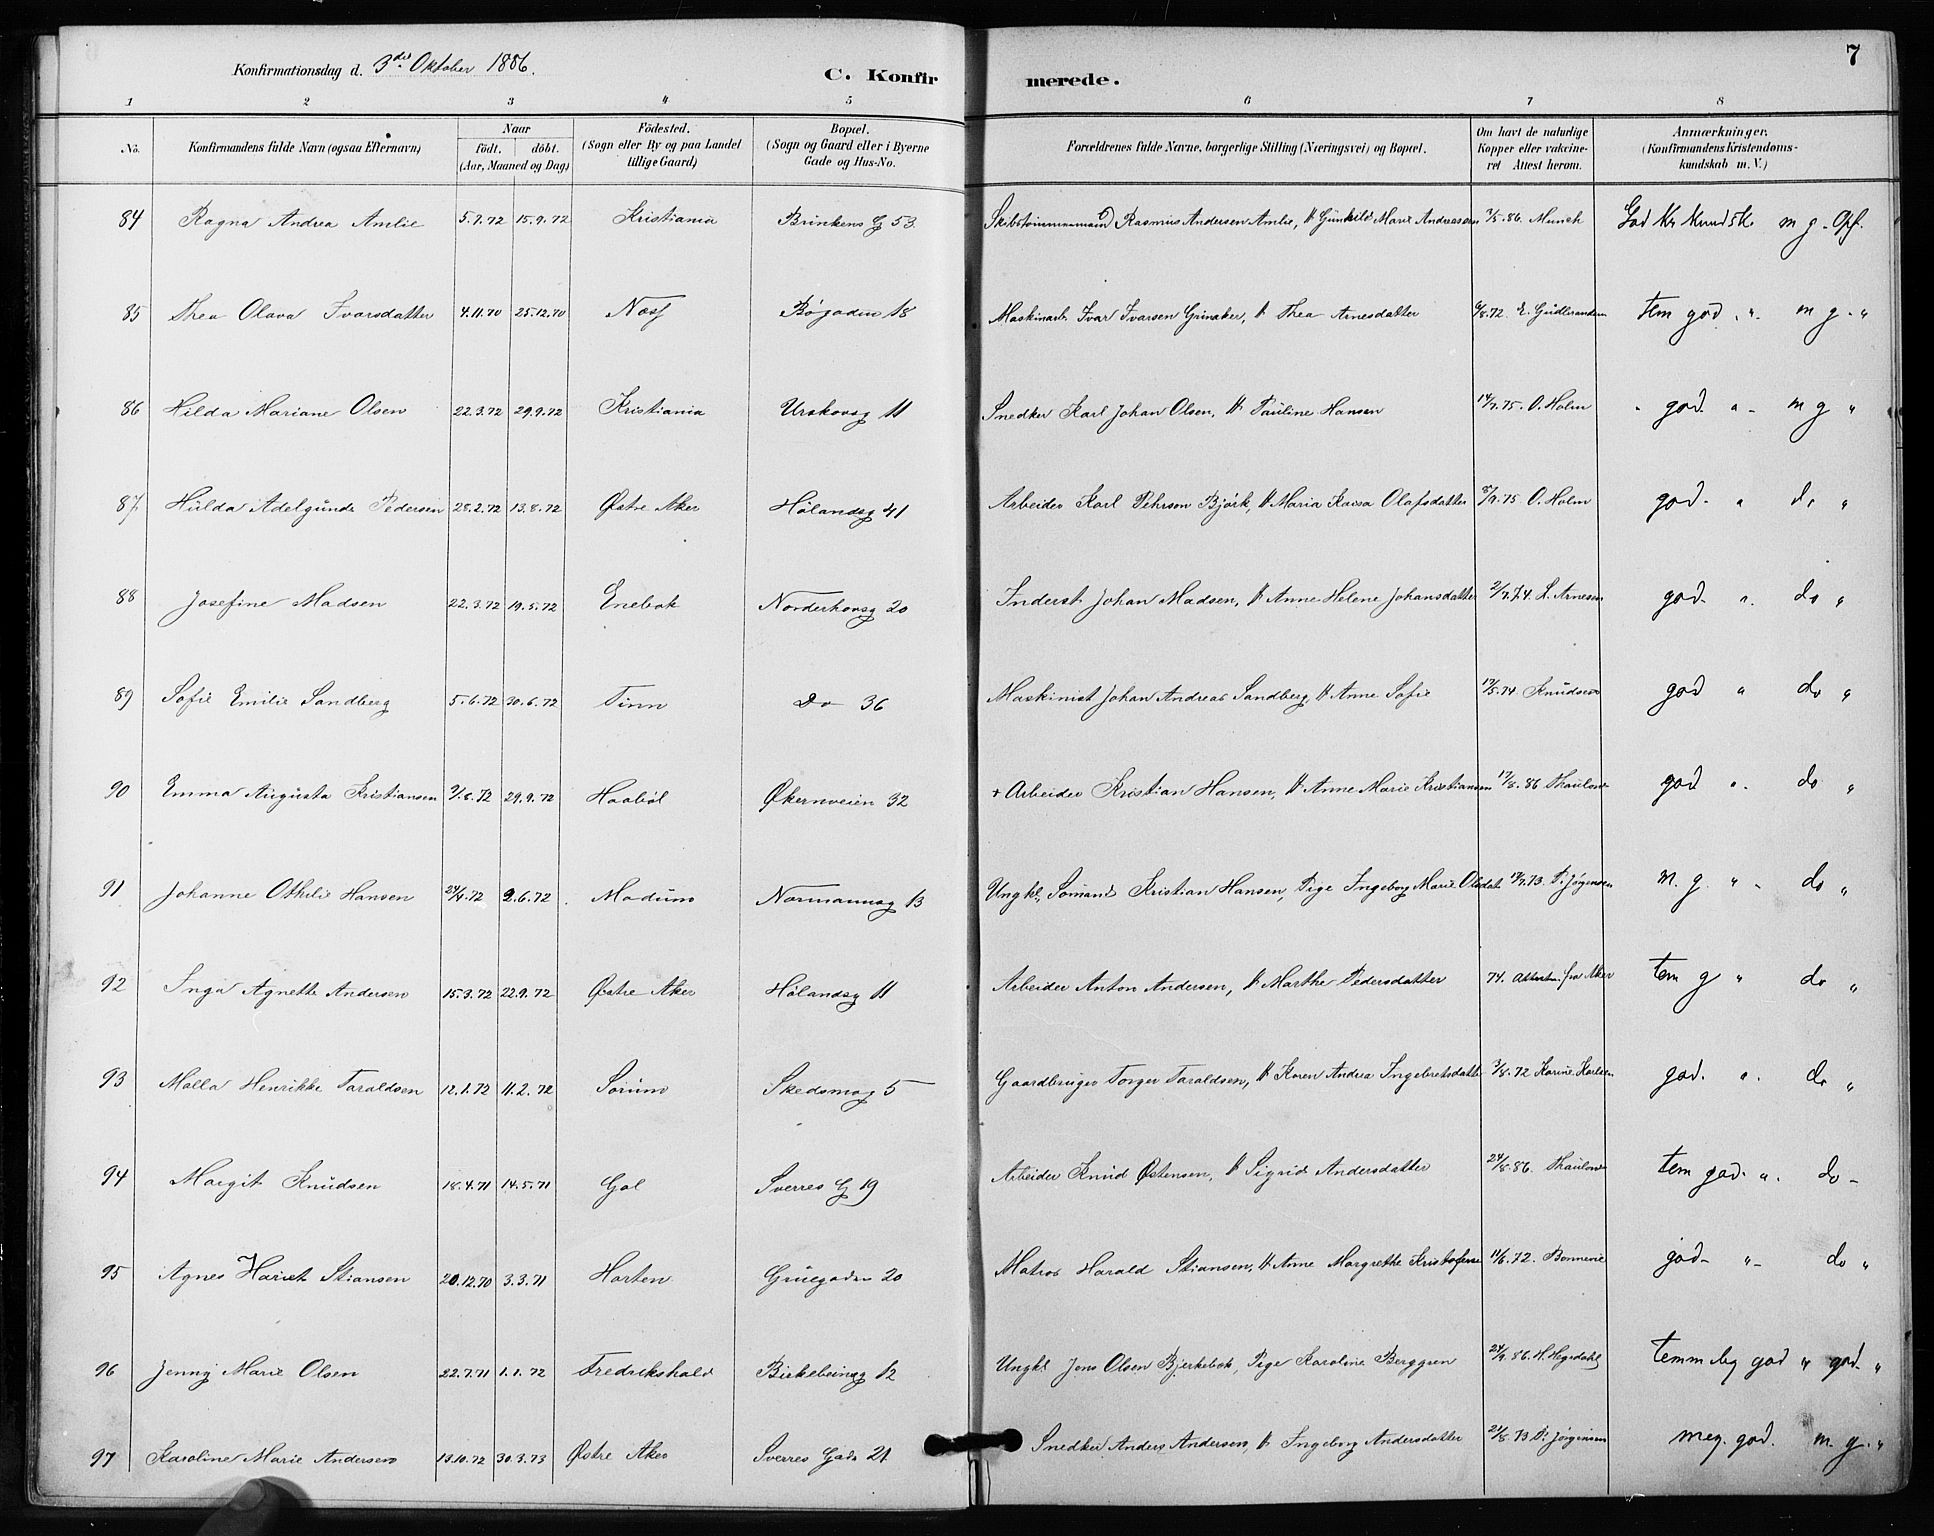 7
Konfirmationsdag d. 3die Oktober 1886.
C. Konfir merede.
1 2 3 4 5 6 7 8
No. Konfirmandens fulde Navn (ogsaa Efternavn) Naar födt. döbt. (Aar, Maaned og Dag) Födested. (Sogn eller By og paa Landet tillige Gaard) Bopæl. (Sogn og Gaard eller i Byerne Gade og Hus-No. Forældrenes fulde Navne, borgerlige Stilling (Næringsvei) og Bopæl. Om havt de naturlige Kopper eller vakcineret Attest herom. Anmærkninger. (Konfirmandens Kristendomskundskab m. V.)
84 Ragna Andrea Amlie 5.7.72 15.9.72 Kristiania Brinkens G 53 Skibstømmermand Rasmus Andersen Amlie, H Gunhild Marie Andreassen 7/5.86. Munch God Kr Kundsk. m g. Opf.
85 Thea Olava Ivarsdatter 4.11.70 25.12.70 Næsf Bøgaden 18 Maskinarb. Ivar Ivarsen Grinaker, H Thea Arnesdatter 6/8.72 E. tem god " m g. "
86 Hilda Mariane Olsen 22.3.72 29.9.72 Kristiania Urskovsg 11 Snedker Karl Johan Olsen, H Pauline Hansen 14/7.75. O. Holm " god " m g "
87 Hulda Adelgunde Pedersen 28.2.72 13.8.72 Østre Aker Hølandsg 41 Arbeider Karl Pehrson Bjørk, H Maria Kaisa Olafsdatter 8/9.75 O. Holm god " do "
88 Josefine Madsen 22.3.72 19.5.72 Enebak Norderhovsg 20 Inderst Johan Madsen, H Anne Helene Johansdatter 2/7.74. L. Arnesen god " do "
89 Sofie Emilie Sandberg 5.6.72 30.6.72 Tinn Do 36 Maskinist Johan Andreas Sandberg, H Anne Sofie 17/5.74 Knudsen god " do "
90 Emma Augusta Kristiansen 9/6.72 29.9.72 Haabøl Økernveien 32 + Arbeider Kristian Hansen, H Anne Marie Kristiansen 17/8.86 Thaulow god " do "
91 Johanne Othilie Hansen 24/4.72 2.6.72 Modum Normannsg 13 Ungkl. Sømand Kristian Hansen, Pige Ingeborg Marie Olsdat 19/7.73. P. Jørgensen m. g. " do "
92 Inga Agnethe Andersen 15.3.72 22.9.72 Østre Aker Hølandsg 11 Arbeider Anton Andersen, H Marthe Pedersdatter 74. Attestn. fra Aker tem g " do "
93 Molla Henrikke Taraldsen 12.1.72 11.2.72 Sørum Skedsmog 5 Gaardbruger Torger Taraldsen, H Karen Andrea Ingebretsdatter 3/8.72 Karine Karlsen god. " do "
94 Margit Knudsen 18.4.71 14.5.71 Gol Sverres G 19 Arbeider Knud Østensen, H Sigrid Andersdatter 24/8.86. Thaulow tem god " do
95 Agnes Hariet Stiansen 20.12.70 3.3.71 Horten Gruegaden 20 Matros Harald Stiansen, H Anne Margrethe Kristofersen 11/6.72. Bonnevie god " do "
96 Jenny Marie Olsen 22.7.71 1.1.72 Fredrikshald Birkebeinerg 12 Ungkl Jens Olsen Bjerkebæk, Pige Karoline Berggren 24/9.86. H. temmelig god " god. "
97 Karoline Marie Andersen 13.10.72 30.3.73 Østre Aker Sverres Gade 21 Snedker Anders Andersen, H Ingeborg Andersdatter 21/8.73 P. Jørgensen meg. god. m. g. "